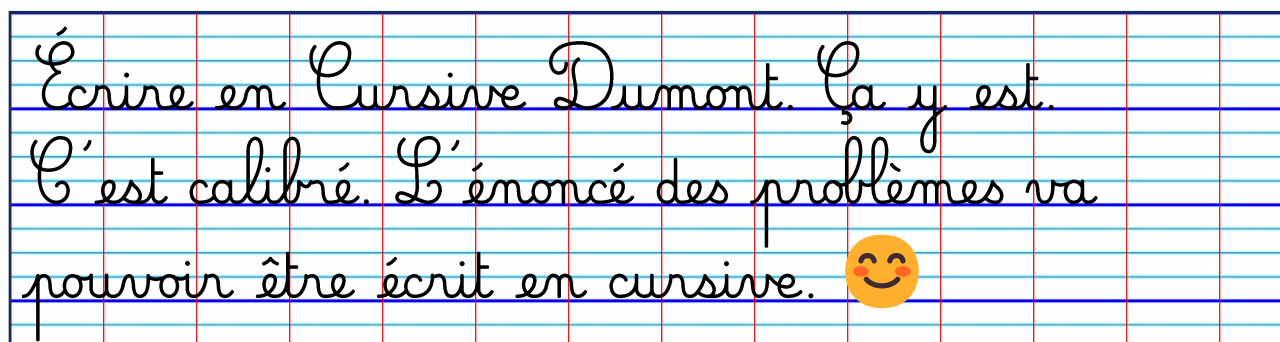 Écrire en Cursive Dumont. Ça y est.
C'est calibré. L'énoncé des problèmes va
pouvoir être écrit en cursive. 😊